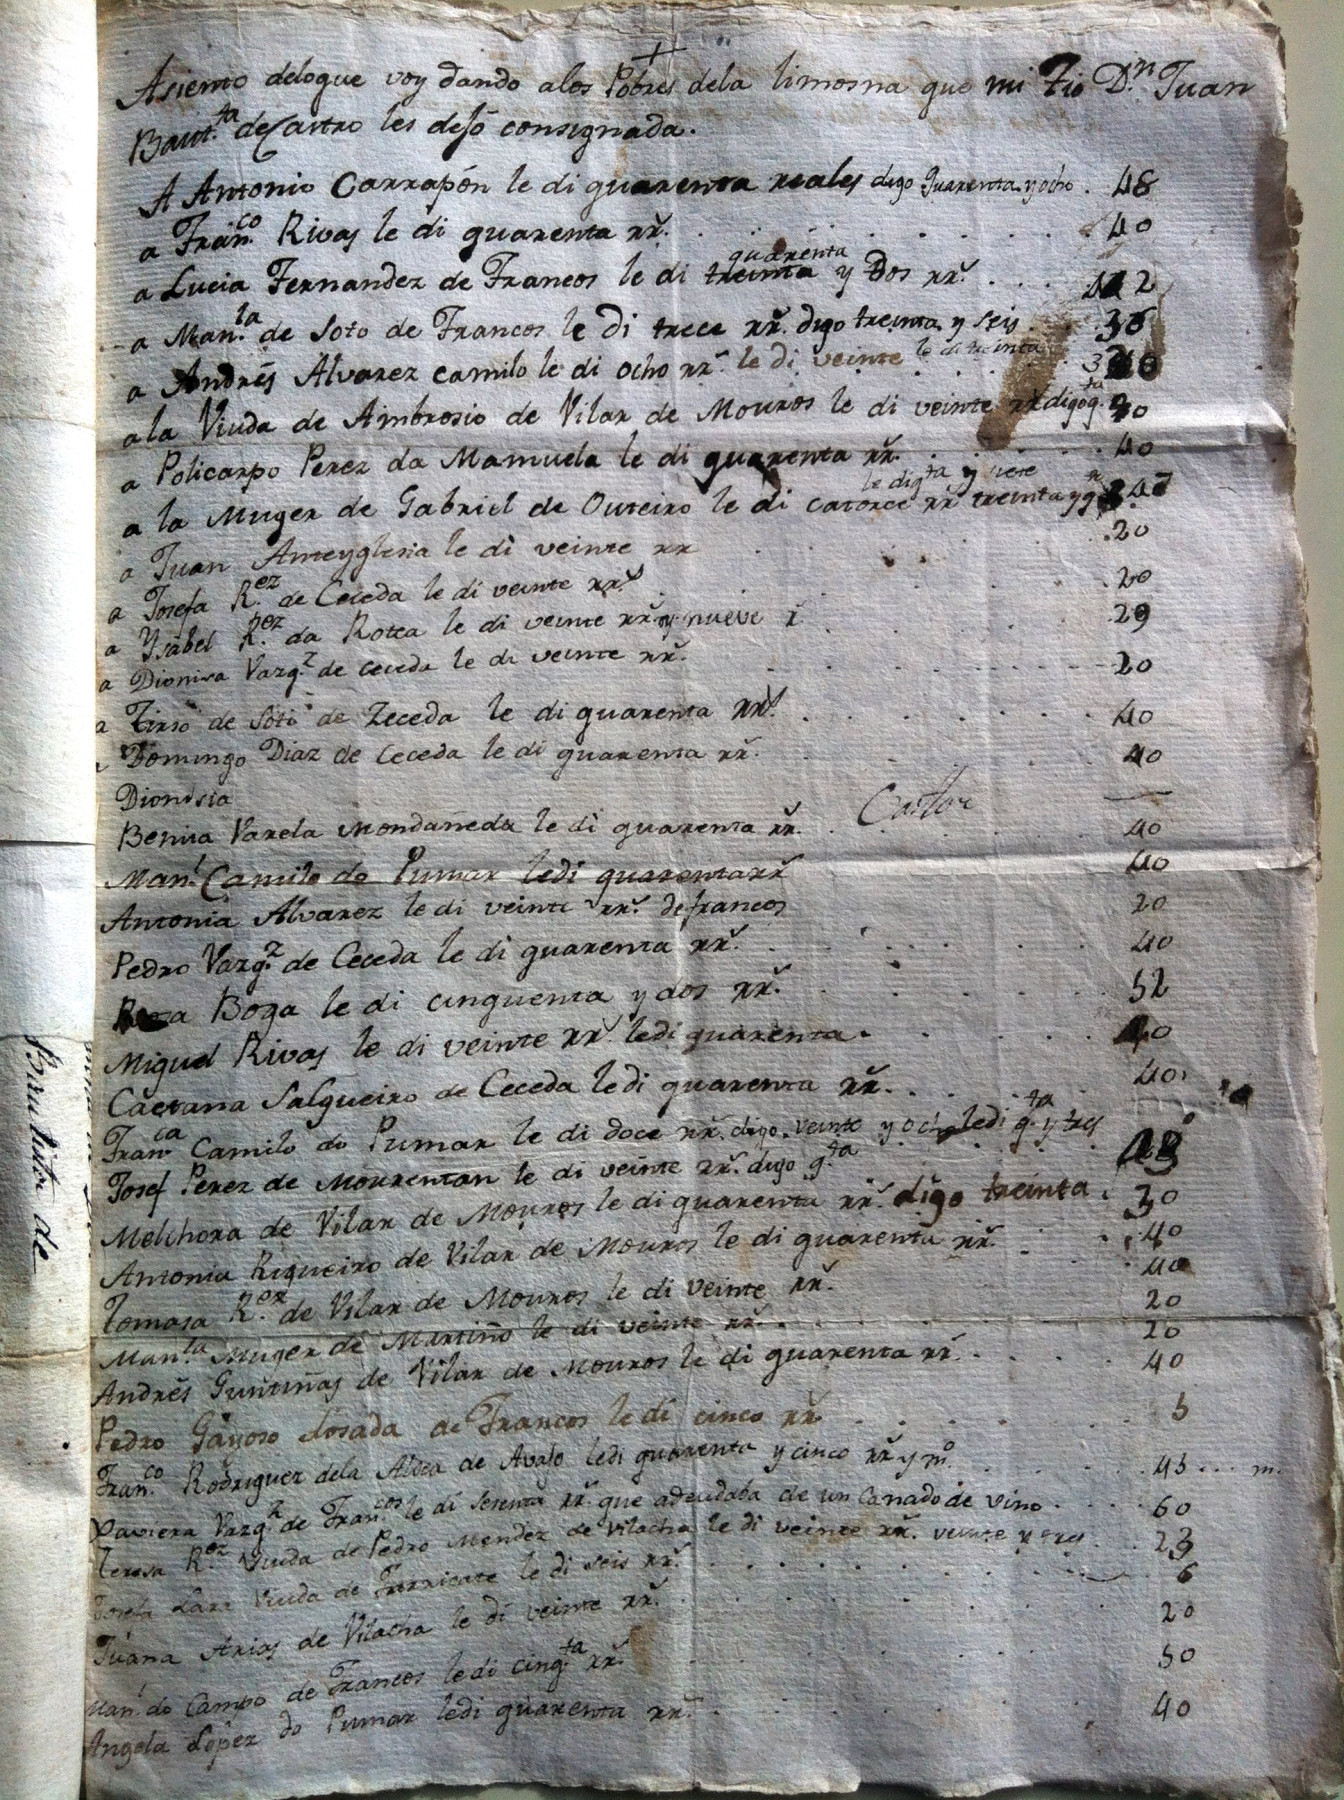 +
Asiento deloque voy dando alos Pobres dela limosna que mi tio D.n Juan
Baut.ta de Castro les dejó consignada.
A Antonio Carrapón le di quarenta reales digo quarenta y ocho . 48
a Fran.co Rivas le di quarenta rr.s . . . 40
a Lucia Fernandez de Francos le di treinta quarenta y Dos rr.s . . . 42
a Man.la de Soto de Francos le di trece rr.s digo treinta y seis . 36
a Andrés Alvarez camilo le di ocho rr.s le di veinte le di treinta . . . 30
a la Viuda de Ambrosio de Vilar de Mouros le di veinte rr.s digo q.ta 40
a Policarpo Perez da Mamuela le di quarenta rr.s . . . 40
a la Muger de Gabriel de Outeiro le di catorce rr.s treinta y q.o le di q.ta y siete 47
a Juan Anteyglesia le di veinte rr . . . 20
a Josefa R.ez de Ceceda le di veinte rr.s . 20
a Ysabel R.ez da Rotea le di veinte rr.s y nueve r . 29
a Dionisa Vazq.z de Ceceda le di veinte rr.s . . . 20
a Tirso de Soto de Zeceda le di quarenta rr.s . . . 40
a Domingo Diaz de Ceceda le di quarenta rr.s . 40
Dionisia
Castor
Benita Varela Mondaneda le di quarenta rr.s . . . 40
Man.l Camilo do Pumar ledi quarenta rr.s 40
Antonia Alvarez le di veinte rr.s de francos 20
Pedro Vazq.z de Ceceda le di quarenta rr.s . . . 40
Rosa Boga le di cinquenta y dos rr.s . . . 52
Miguel Rivas le di veinte rr.s ledi quarenta . . . 40
Caetana Salgueiro de Ceceda ledi quarenta rr.s . . . 40
Fran.ca Camilo do Pumar le di doce rr.s digo veinte y ocho ledi q.ta y tres 43
Josef Perez de Mourentan le di veinte rr.s digo q.ta
Melchora de Vilar de Mouros le di quarenta rr.s digo treinta . 30
Antonia Rigueiro de Vilar de Mouros le di quarenta rr.s . . . 40
40
Tomasa R.ez de Vilar de Mouros le di veinte rr.s 20
Man.la Muger de Martiño le di veinte rr.s . . . 20
Andrés Guntiñas de Vilar de Mouros le di quarenta rr.s . . . 40
Pedro Gayoso Losada de Francos le di cinco rr.s . . . 5
Fran.co Rodriguez dela Aldea de Avajo ledi quarenta y cinco rr.s y m.o . . . 45 . . . m.
Xaviera Vazq.z de Fran.cos le di sesenta rr.s que adeudaba de un Canado de vino . . . 60
Teresa R.ez Viuda de Pedro Mendez de Vilacha le di veinte rr.s veinte y tres . . 23
Josefa Lara Viuda de Farricate le di seis rr.s . . . 6
Juana Arias de Vilacha le di veinte rr.s . . . 20
Man.l do Campo de Francos ledi cinq.ta rr.s . . . 50
Angela Lopez do Pumar ledi quarenta rr.s . . . 40